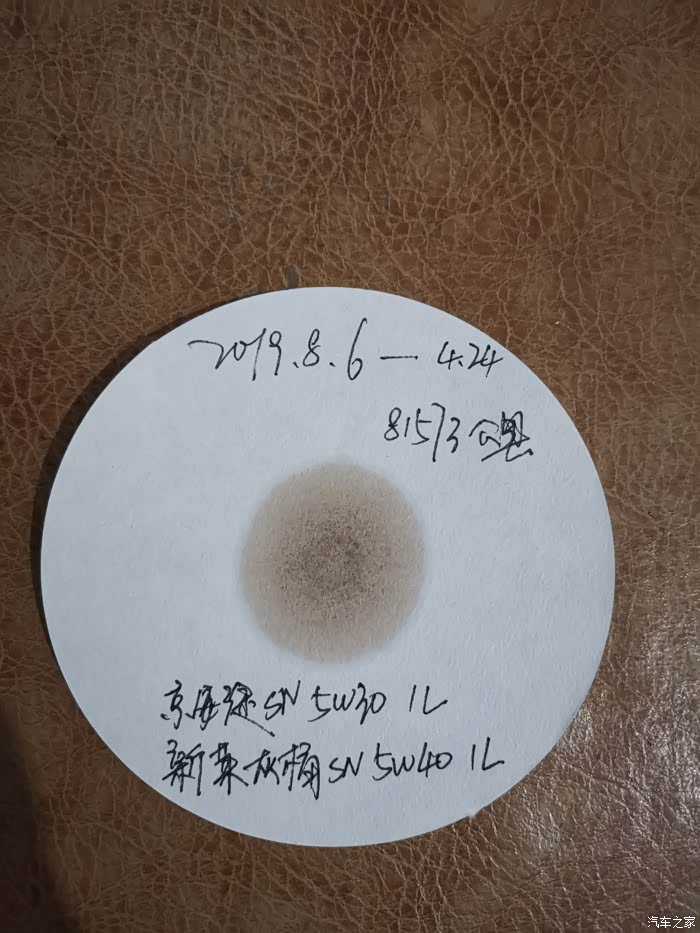 2019.8.6 — 4.24
81573公里
京 SN 5W30 1L
新 灰桶SN 5W40 1L
汽车之家